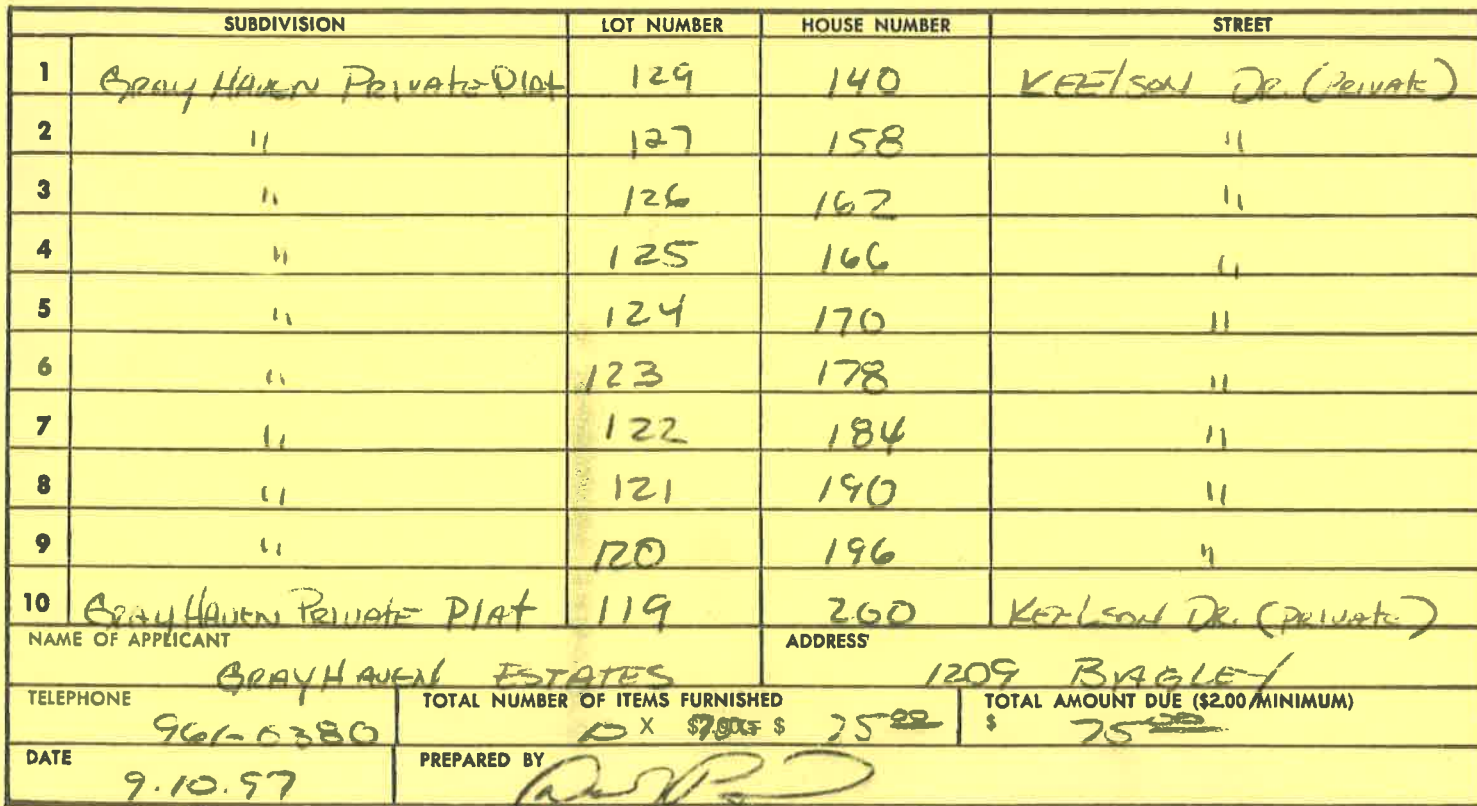 SUBDIVISION LOT NUMBER HOUSE NUMBER STREET
1 GRAY HAVEN PRIVATE PLAT 129 140 KEELSON DR. (PRIVATE)
2 " 127 158 "
3 " 126 162 "
4 " 125 166 "
5 " 124 170 "
6 " 123 178 "
7 " 122 184 "
8 " 121 190 "
9 " 120 196 "
10 GRAYHAVEN PRIVATE PLAT 119 200 KEELSON DR. (PRIVATE)
NAME OF APPLICANT ADDRESS
GRAYHAVEN ESTATES 1209 BAGLEY
TELEPHONE TOTAL NUMBER OF ITEMS FURNISHED TOTAL AMOUNT DUE ($2.00/MINIMUM)
961-0380 X $ $
DATE PREPARED BY
9.10.97